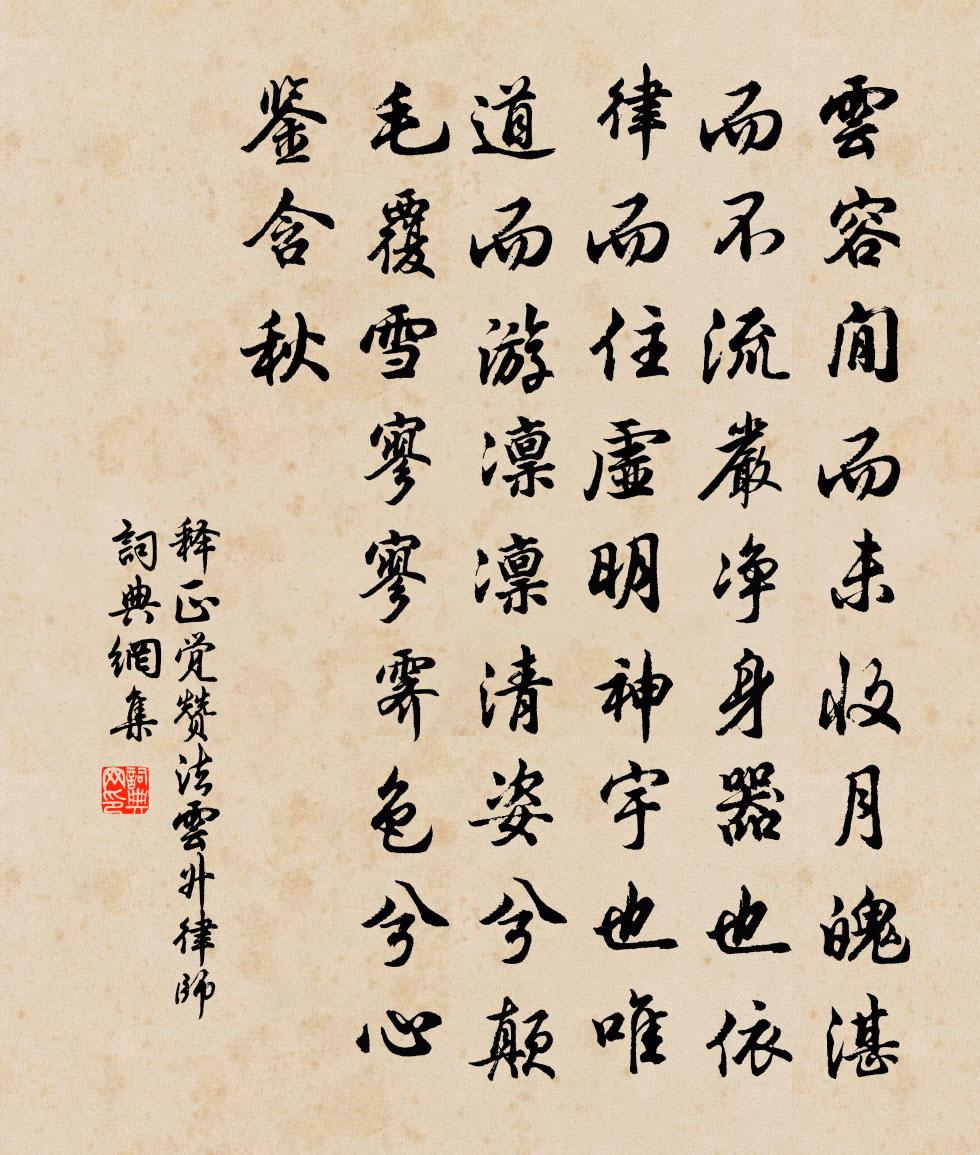 雲容閒而未收月魄湛
而不流嚴净身器也依
律而住虛明神宇也唯
道而游凛凛清姿兮顛
毛覆雪寥寥霽色兮心
鉴含秋
释正覚赞法雲升律師
詞典網集
詞典网印